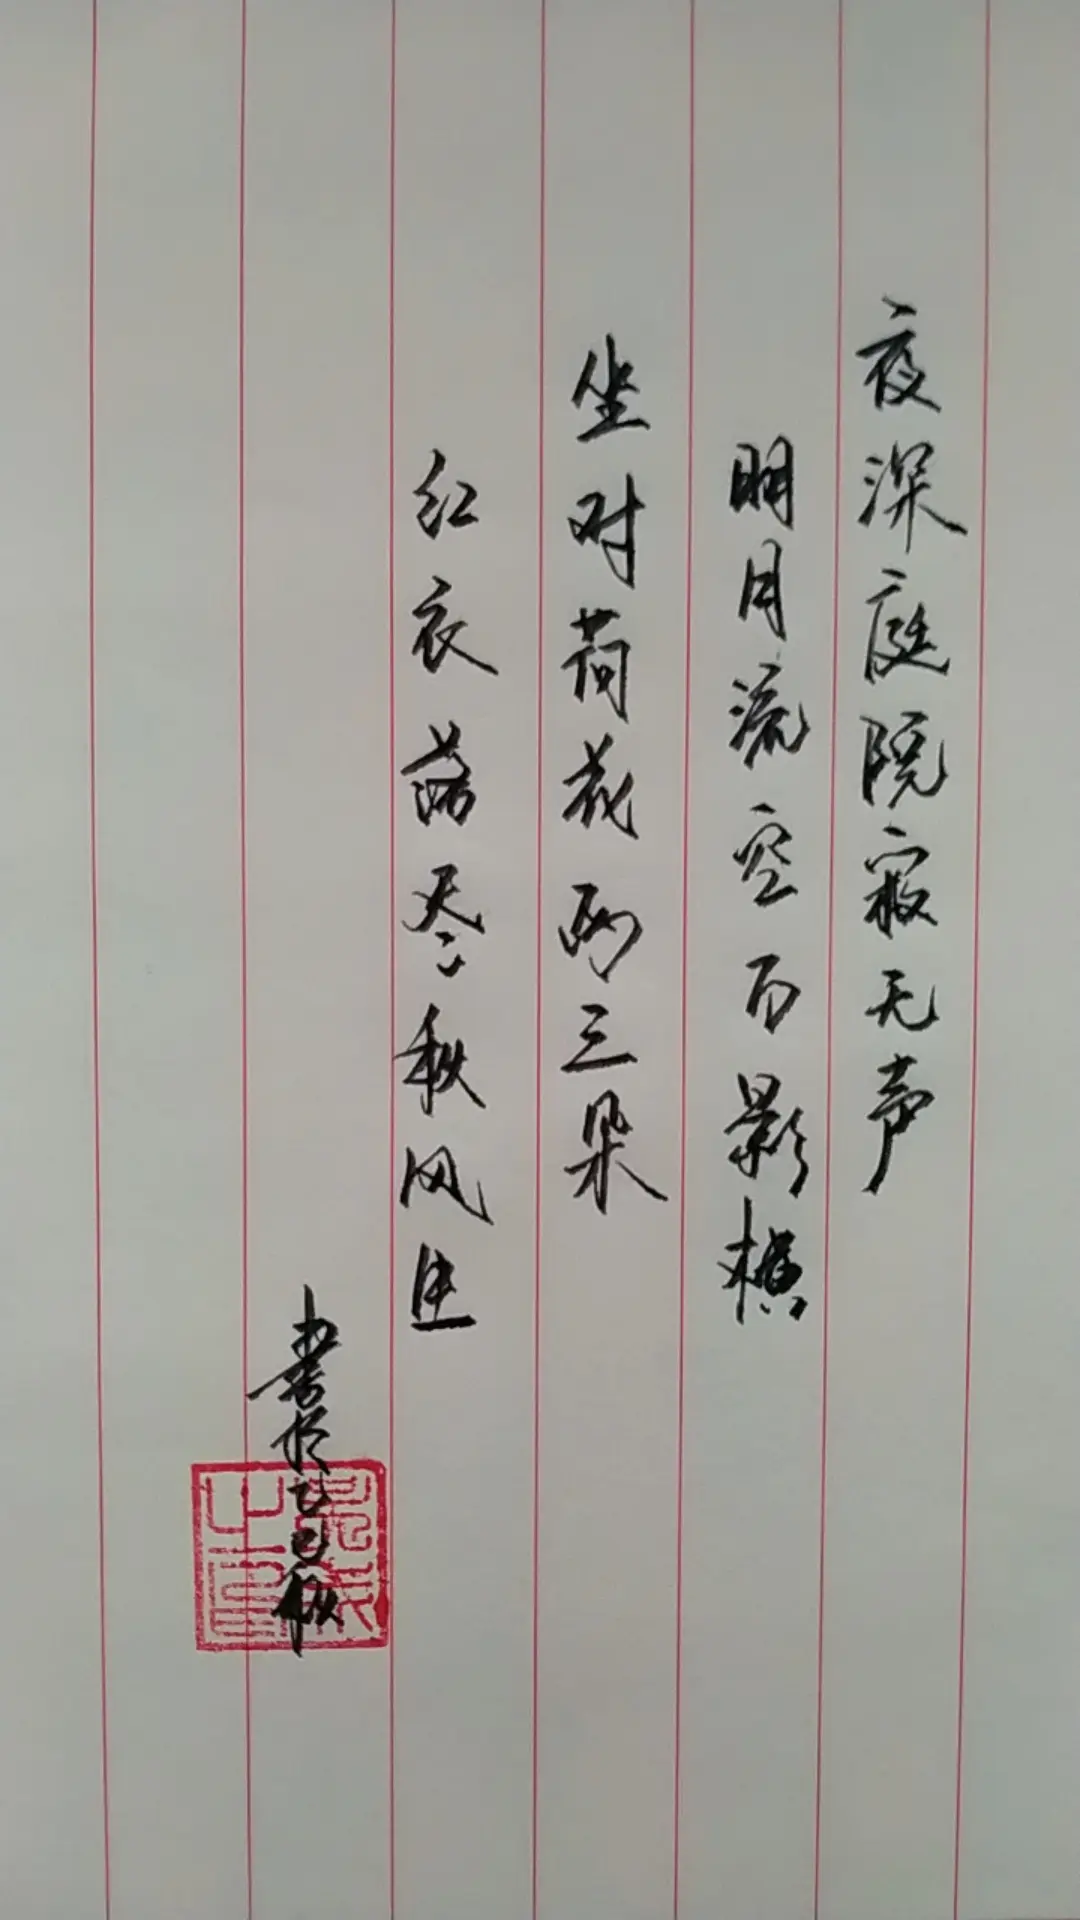 夜深庭院寂无声
明月流空万影横
坐对荷花两三朵
红衣落尽秋风生
书于乙巳秋